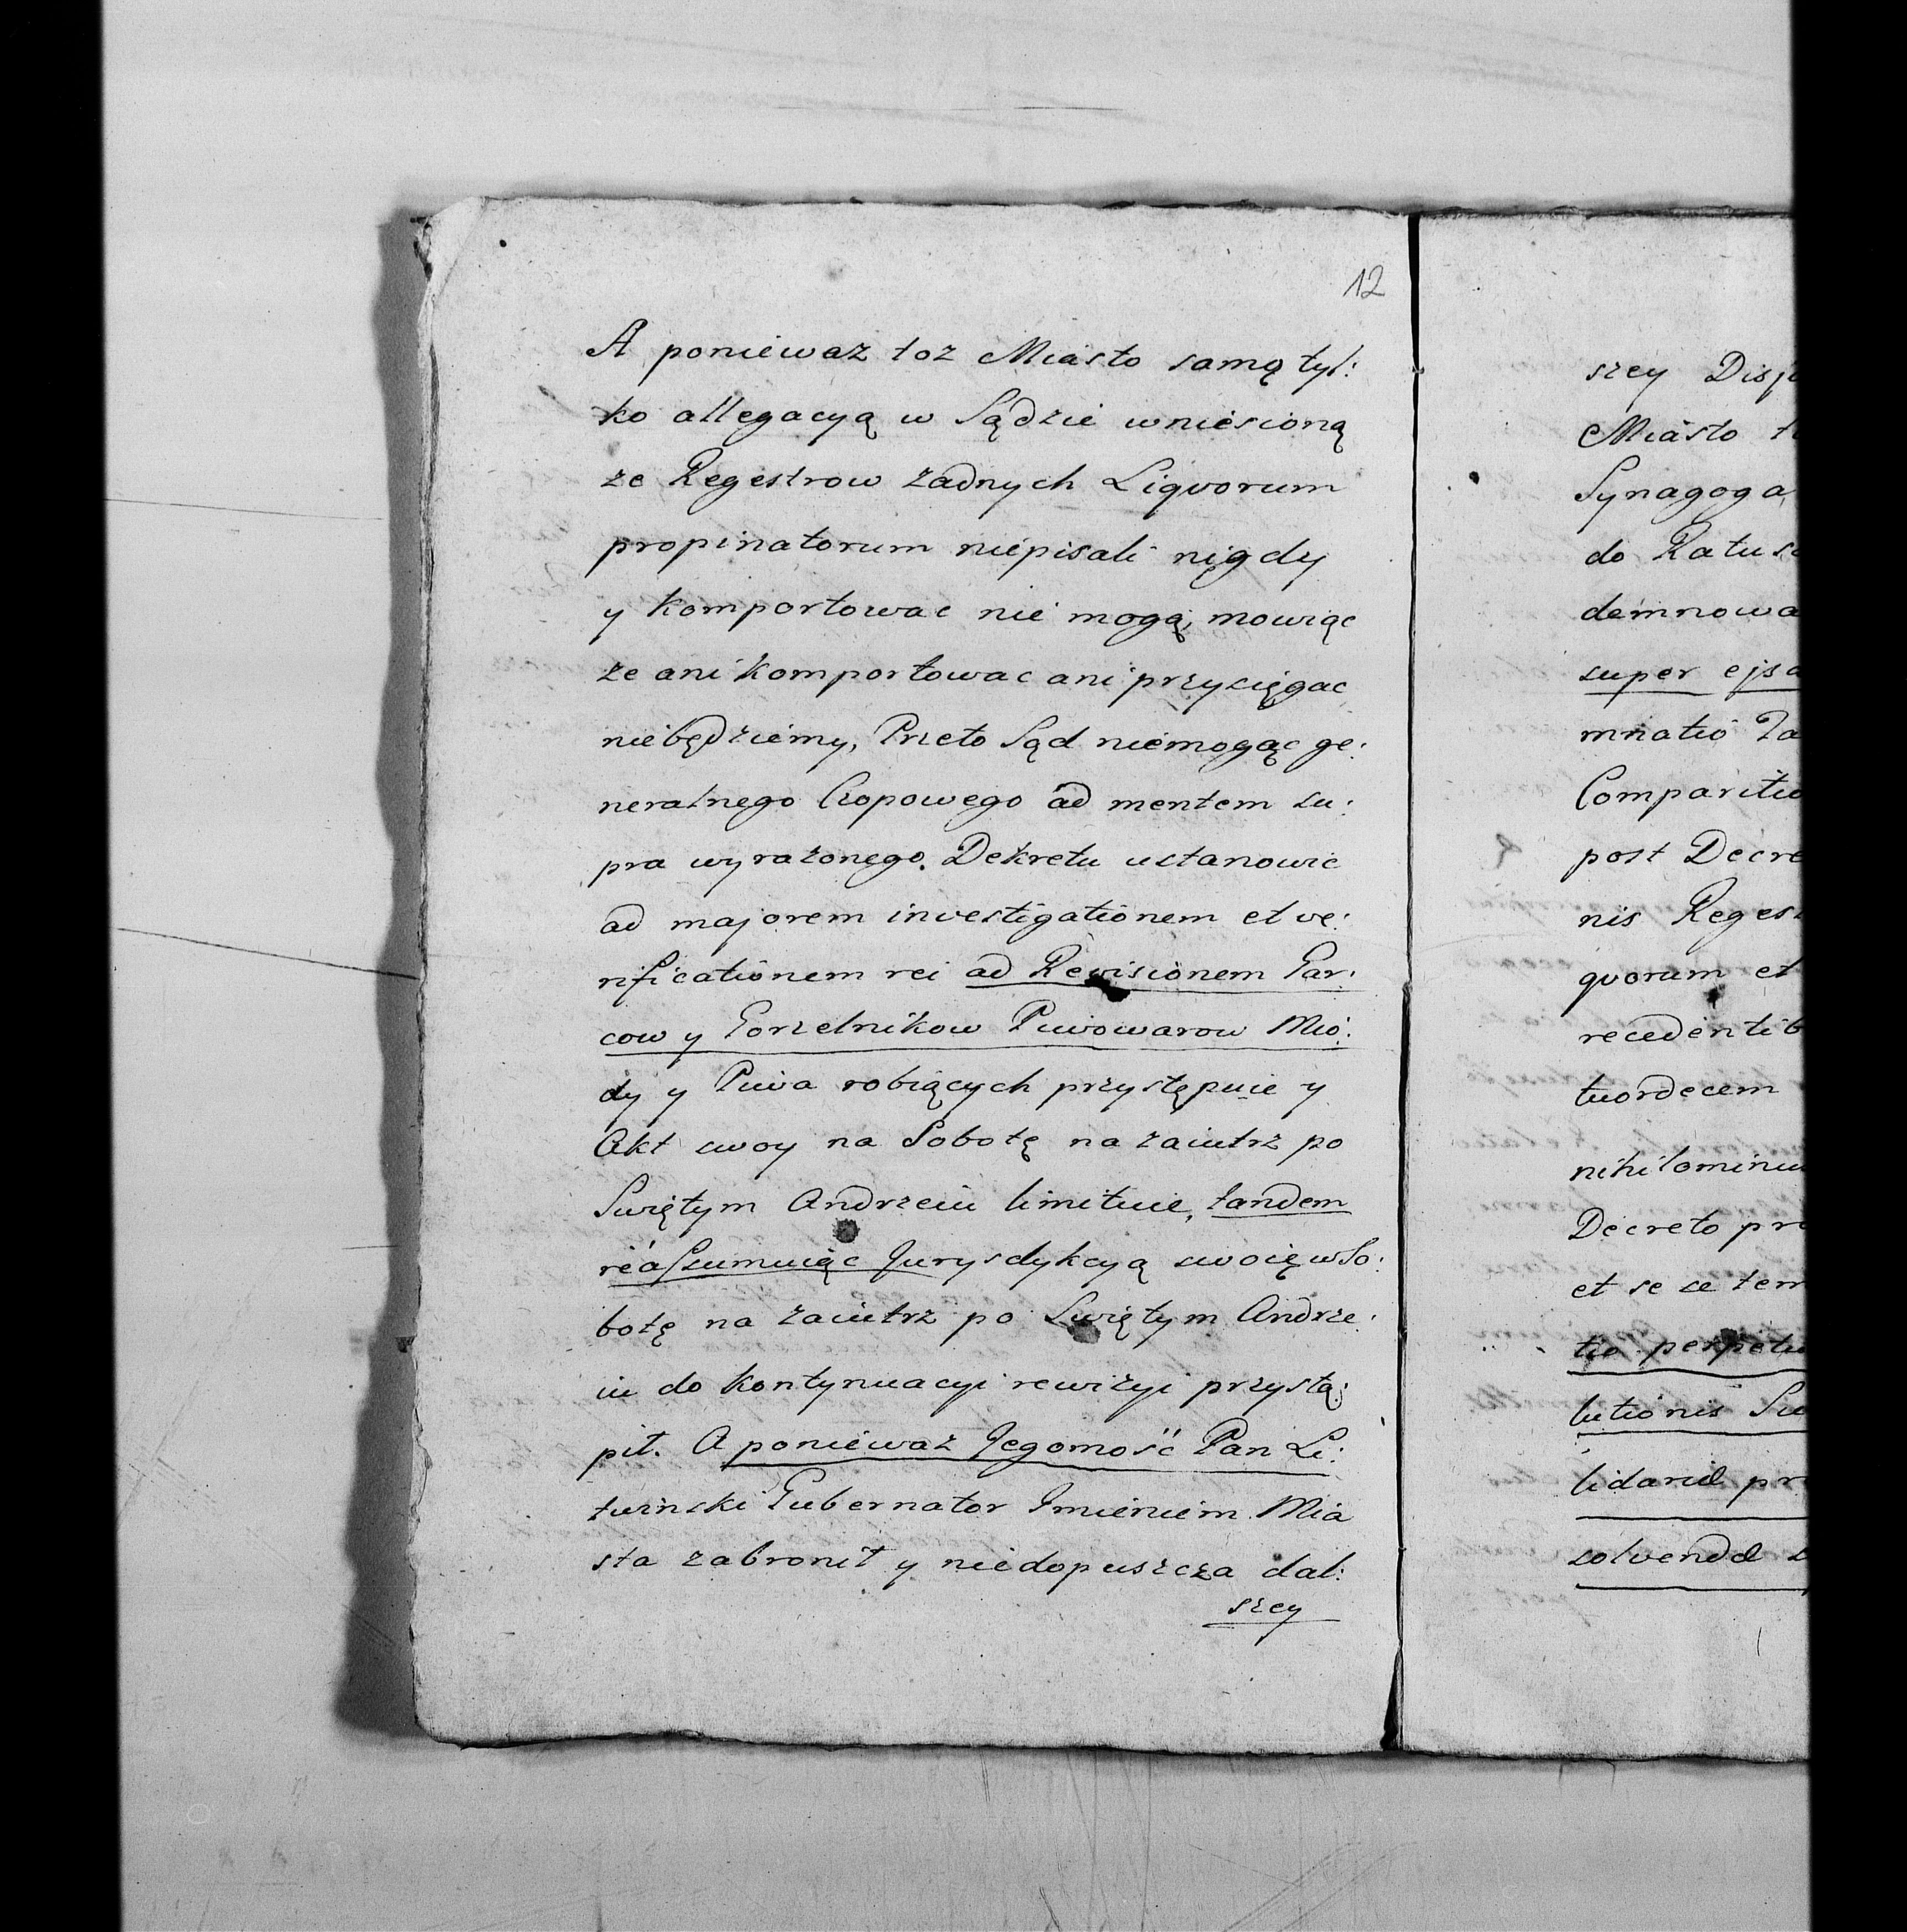 12
A poniewaz toz Miasto samą tyl:
ko allegacyą w Sądzie wniesioną
ze Regestrow zadnych Liqvorum
propinatorum niepisali nigdy
y komportowac nie mogą, mowiąc
ze ani komportowac ani przysięgac
niebędziemy, Przeto Sąd niemogąc ge:
neralnego Czopowego ad mentem su:
pra wyrazonego Dekretu ustanowic
ad majorem investigationem et ve:
rificationem rei ad Revisionem Gar:
cow y Gorzelnikow Piwowarow Mio:
dy y Piwa robiących przystępuie y
Akt swoy na Sobotę na zaiutrz po
Swiętym Andrzeiu limituie, tandem
reassumuiąc Jurysdykcyą swoię w So:
botę na zaiutrz po Swiętym Andrze:
iu do kontynuacyi rewizyi przystą:
pił. A poniewaz Jegomość Pan Li:
twinski Gubernator Imieniem Mia
sta zabronił y niedopuszcza dal:
szey
szey
Miasto
Synagoga
do
super
Comparitio
post
nis
quorum et
tuordecem
Decreto
et se se
lutionis